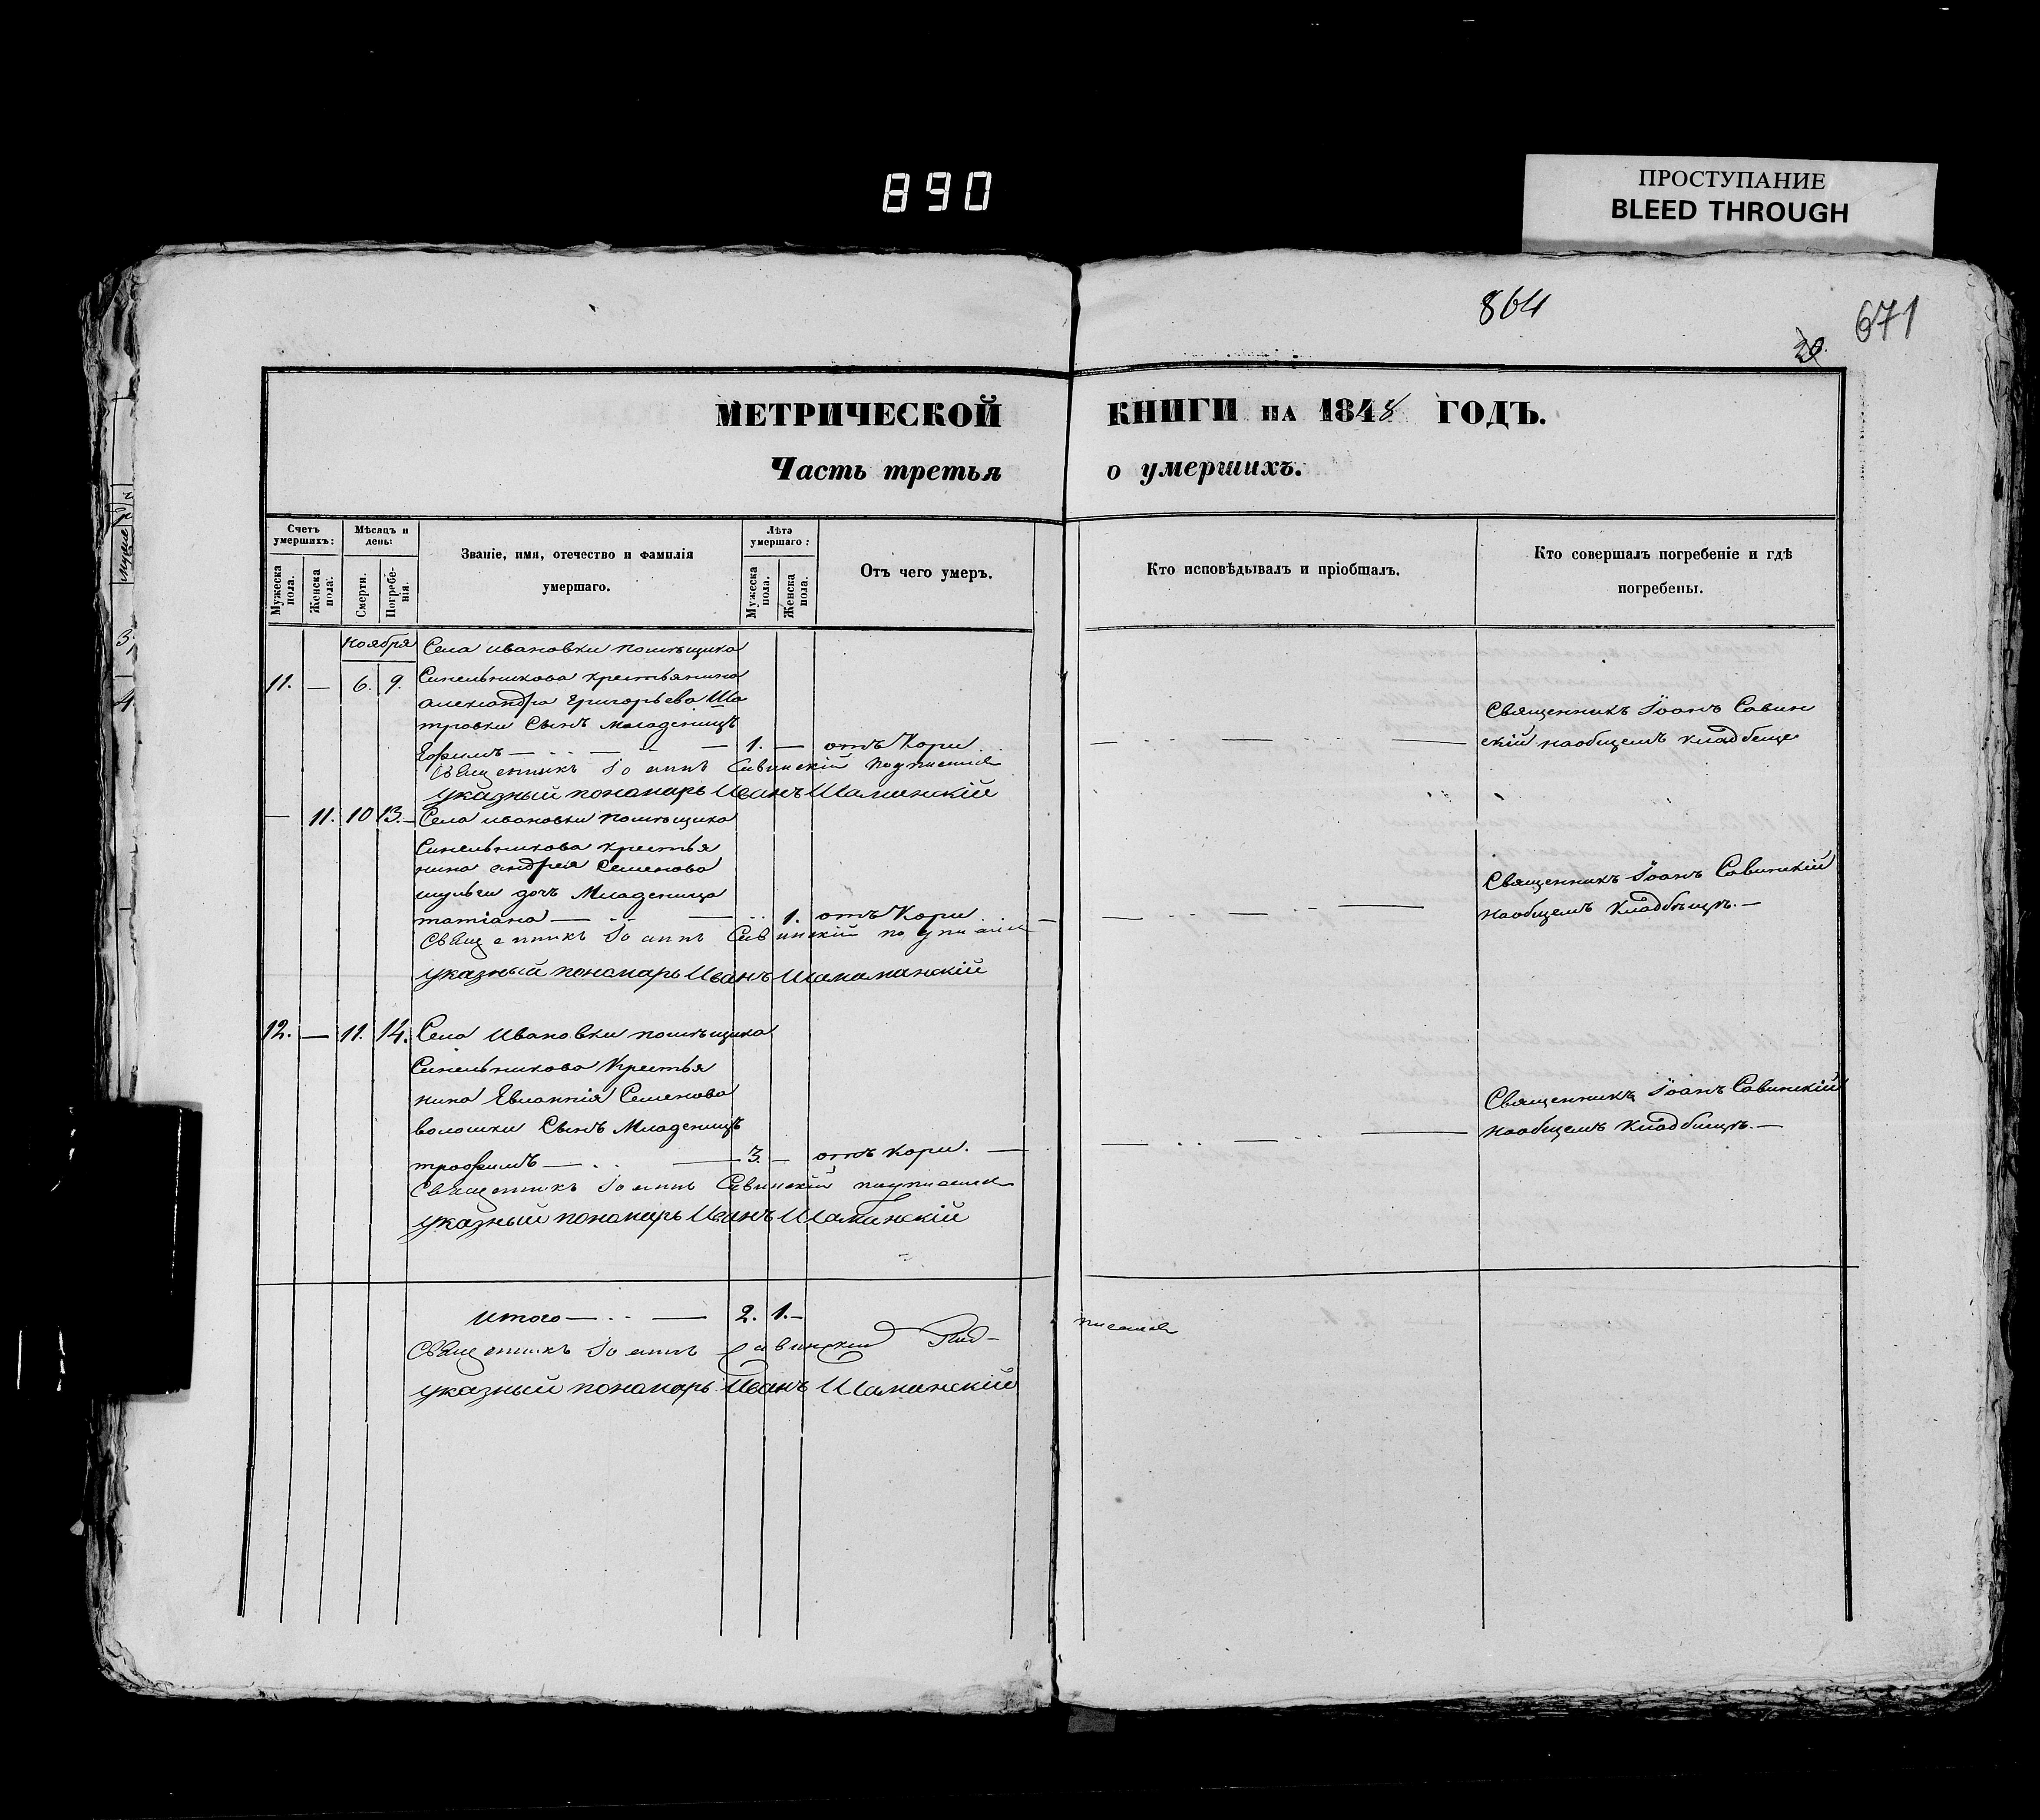 890
ПРОСТУПАНИЕ
BLEED THROUGH
864
671
МЕТРИЧЕСКОЙ КНИГИ НА 1848 ГОДЪ.
Часть третья о умершихъ.
Счетъ умершихъ:
Мѣсяцъ и день:
Званіе, имя, отечество и фамилія умершаго.
Лѣта умершаго:
Отъ чего умеръ.
Кто исповѣдывалъ и пріобщалъ.
Кто совершалъ погребеніе и гдѣ погребены.
Мужеска пола.
Женска пола.
Смерти.
Погребенія.
Мужеска пола.
Женска пола.
Ноября
Села ивановки помѣщика
11. — 6. 9. Синельникова крестьянина
александра Григорьева Ша
тровки Сынъ младенецъ
Ефимъ — 1. — отъ Кори
Священникъ Іоаннъ Савин
скій наобщемъ кладбище
Священникъ Іоаннъ Савинскій подписался
указный пономарь Иванъ
— 11. 10 13. Села ивановки помѣщика
Синельникова крестья
нина андрея Семенова
шульги дочь Младеница
татіана — 1. отъ Кори
Священникъ Іоаннъ Савинскій
наобщемъ Кладбищѣ. —
Священникъ Іоаннъ Савинскій подписался
указный пономарь Иванъ
12. — 11. 14. Села Ивановки помѣщика
Синельникова Крестья
нина Евлампія Семенова
волошки Сынъ Младенецъ
трофимъ — 3. — отъ кори. —
Священникъ Іоаннъ Савинскій
наобщемъ Кладбищѣ. —
Священникъ Іоаннъ Савинскій подписался
указный пономарь Иванъ
итого — 2. 1. —
Священникъ Іоаннъ Савинскій Под-
писался
указный пономарь Иванъ